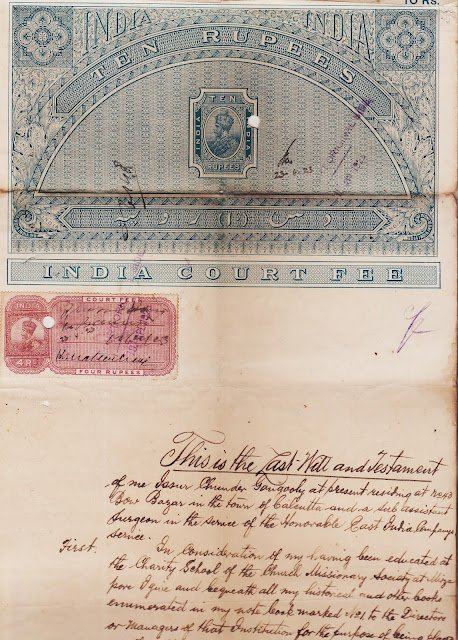 10 Rs.
INDIA INDIA
TEN RUPEES
TEN
INDIA INDIA
RUPEES
دس روپیہ
INDIA COURT FEE
COURT FEES
INDIA
4 RS
FOUR RUPEES
This is the Last Will and Testament
of me Issur Chunder Gangooly at present residing at No 43
Bow Bazar in the town of Calcutta and a sub assistant
Surgeon in the service of the Honorable East India Company's
service.
First. In Consideration of my having been educated at
the Charity School of the Church Missionary Society at Mirza
pore I give and bequeath all my historical and other books
enumerated in my note book marked No 1, to the Directors
or Managers of that Institution for the purpose of being